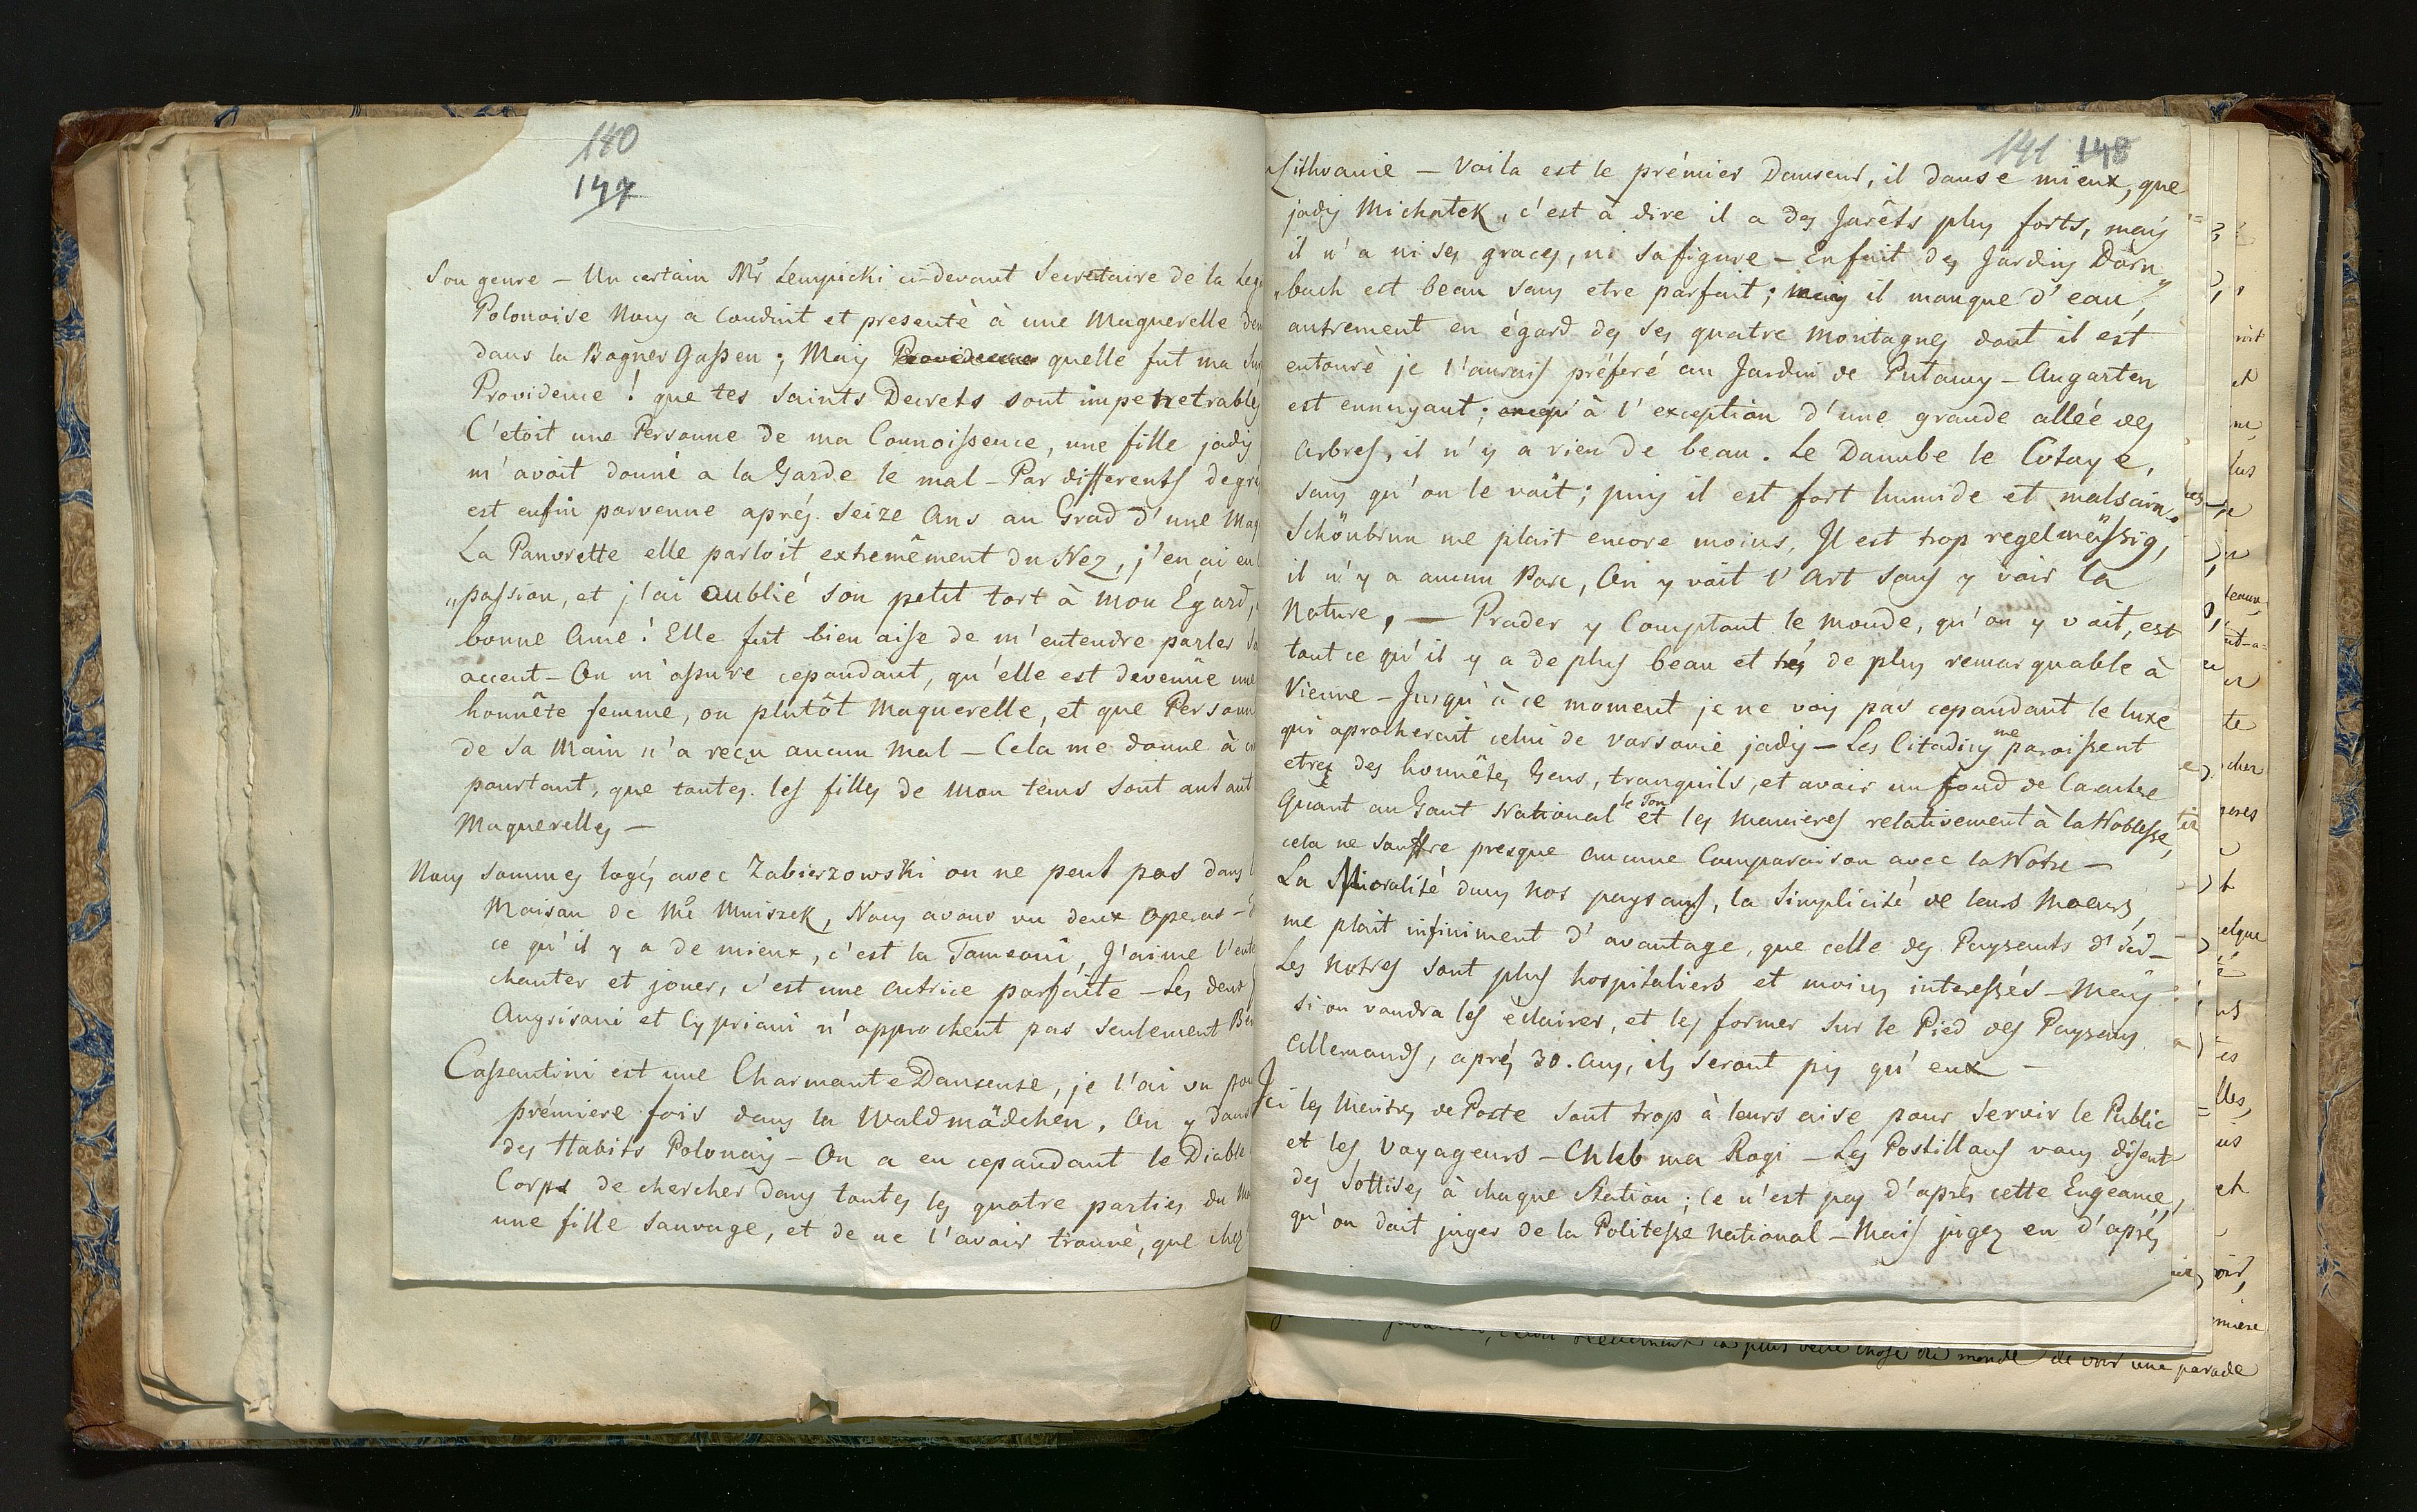 180
147
Son genre – Un certain Mr Lempicki ci-devant Secretaire de la Leg
Polonoise Nous a conduit et presentè à une Maquerelle dem
dans la Bogner Gaßen ; Mais Providence quelle fut ma Sur
Providence ! que tes Saints Decrets sont impenetrables
C'etoit une Personne de ma Connoißence, une fille jadis
m'avoit donné a la Garde le mal – Par differents degrés
est enfin parvenue aprés seize ans au Grad d'une Maq
La Pauvrette elle parloit extremêment du Nez, j'en ai eu
„passion, et j'ai oublié son petit tort à mon Egard,
bonne Ame ! Elle fut bien aise de m'entendre parler sa
accent – On m'assure cepandant, qu'elle est devenüe une
honnête femme, ou plutôt Maquerelle, et que Personn
de sa Main n'a reçu aucun mal – Cela me donne à
pourtant, que toutes les filles de mon tems sont autant
Maquerelles –
Nous sommes logés avec Zabierzowski on ne peut pas dans
Maison de Mr Mniszek, Nous avons vu deux operas –
ce qu'il y a de mieux, c'est la Tomeoni, J'aime l'ente
chanter et jouer, c'est une actrice parfaite – Les deux
Angrisani et Cypriani n'approchent pas seulement Be
Caßentini est une Charmante Danseuse, je l'ai vu pou
prémiere fois dans la Waldmädchen, On y dans
des Habits Polonais – On a eu cepandant le Diable
Corps de chercher dans toutes les quatre parties du Mo
une fille sauvage, et de ne l'avoir trouvè, que chez
141 148
Lithvanie – Voila est le prémier Danseur, il danse mieux, que
jadis Michalek, c'est à dire il a des Jarêts plus forts, mais
il n'a ni ses graces, ni sa figure – En fait des Jardins Dorn
„bach est beau sans etre parfait ; mais il manque d'eau,
autrement en égard des ses quatre montagnes dont il est
entourè je l'aurais préferé au Jardin de Putawy – Augarten
est ennuyant ; à l'exception d'une grande alleé des
Arbres, il n'y a rien de beau. Le Danube le Cotoye,
sans qu'on le voit ; puis il est fort humide et malsain.
Schönbrun me plait encore moins, Il est trop regelmäßsig,
il n'y a aucun Parc, On y voit l'Art sans y voir la
Nature, — Prader y Comptant le monde, qu'on y voit, est
tout ce qu'il y a de plus beau et de plus remarquable à
Vienne – Jusqu'à ce moment je ne vois pas cepandant le luxe
qui aprocherait celui de Varsovie jadis – Les Citadins me paroissent
etres des honnêtes Gens, tranquils, et avoir un fond de Caractere
Quant au Gout National le Ton et les manieres relativement à la Noblesse,
cela ne souffre presque aucune Comparaison avec la Notre –
La Moralité dans nos paysans, la Simplicité de leurs Moeurs,
me plait infiniment d'avantage, que celle des Paysents d'ici –
Les notres sont plus hospitaliers et moins interessés – Mais
si on voudra les éclairer, et les former sur le Pied des Paysans
Allemands, aprés 30. ans, ils seront pis qu'eux –
Ici les Meitres de Poste sont trop à leurs aise pour servir le Public
et les Voyageurs – Chleb ma Rogi – Les Postillons vous disent
des Sottises à chaque Station ; Ce n'est pas d'aprés cette Engeance,
qu'on doit juger de la Politesse National – Mais jugez en d'aprés
la plus belle chose du monde de voir une parade